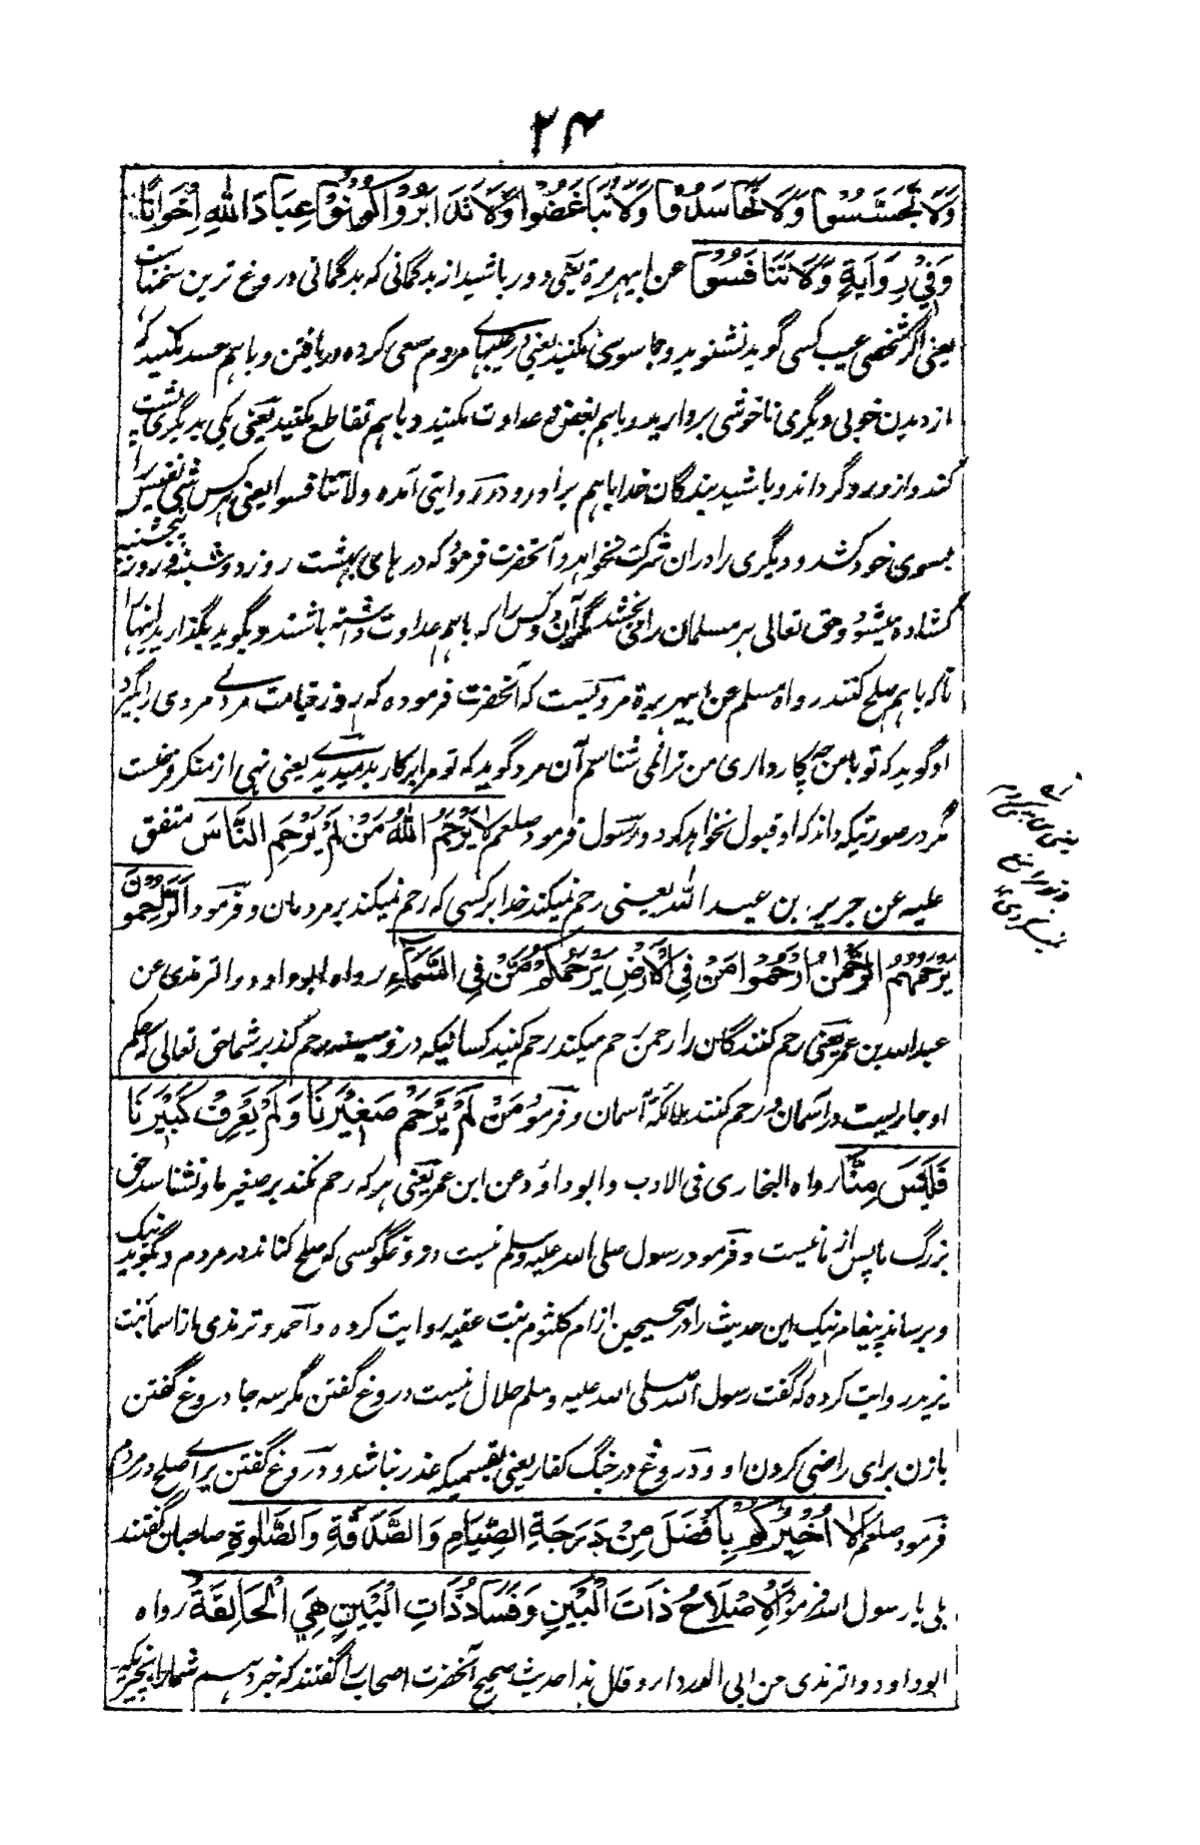 ۲۴
وَلَا تَجَسَّسُوا وَلَا تَحَاسَدُوا وَلَا تَبَاغَضُوا وَلَا تَدَابَرُوا وَكُونُوْا عِبَادَ اللهِ اِخْوَانًا
وَفِيْ رِوَايَةٍ وَلَا تَنَافَسُوْا عن ابیهریرة یعنی دور باشید از بدگمانی که بدگمانی دروغ ترین سخنهاست
یعنی اگر شخصی عیب کسی گوید نشنوید و جاسوسی نکنید یعنی در عیبهای مردم سعی کرده دریافتن و باهم حسد نکنید که
از دیدن خوبی دیگری ناخوشی بردارید و باهم بغض و عداوت نکنید و باهم تقاطع نکنید یعنی یکی بدیگری پشت
کند و از و رو گرداند و باشید بندگان خدا باهم برادر و در روایتی آمده ولا تنافسوا یعنی هر کس شی نفیس را
بسوی خود کشد و دیگری را دران شرکت نخواهد و آنحضرت فرمود که درهای بهشت روز دوشنبه و روز پنجشنبه
کشاده میشود و حق تعالی هر مسلمان را می بخشد مگر آن دو کس را که باهم عداوت داشته باشند و بگوید بگذارید اینها را
تا که باهم صلح کنند رواه مسلم عن ابیهریرة مرویست که آنحضرت فرموده که روز قیامت مردے مردی را بگیرد
او گوید که تو با من چه کار داری من ترا نمی شناسم آن مرد گوید که تو مرا بر کار بد میدیدے یعنی نهی از منکر فرض است
مگر در صورتیکه داند که او قبول نخواهد کرد و رسول فرمود صلعم لَا يَرْحَمُ اللهُ مَنْ لَمْ يَرْحَمِ النَّاسَ متفق
علیه عن جریر بن عبد الله یعنی رحم نمیکند خدا بر کسی که رحم نمیکند بر مردمان و فرمود اَلرَّاحِمُوْنَ
يَرْحَمُهُمُ الرَّحْمٰنُ اِرْحَمُوْا مَنْ فِي الْاَرْضِ يَرْحَمْكُمْ مَنْ فِي السَّمَاءِ رواه ابو داود و الترمذی عن
عبدالله بن عمر یعنی رحم کنندگان را رحمن رحم میکند رحم کنید کسانیکه در زمینند رحم کند بر شما حق تعالی که حکم
او جاریست در آسمان و رحم کنند ملائکهٔ آسمان و فرمود مَنْ لَمْ يَرْحَمْ صَغِيْرَنَا وَلَمْ يَعْرِفْ كَبِيْرَنَا
فَلَيْسَ مِنَّا رواه البخاری فی الادب و ابو داؤد عن ابن عمر یعنی هر که رحم نکند بر صغیر ما و نشناسد حق
بزرگ ما پس از ما نیست و فرمود رسول صلی الله علیه وسلم نیست دروغگو کسی که صلح کناند در مردم و بگوید نیک
و برساند پیغام نیک این حدیث را در صحیحین از ام کلثوم بنت عقبه روایت کرده و احمد و ترمذی از اسما بنت
یزید روایت کرده که گفت رسول الله صلی الله علیه وسلم حلال نیست دروغ گفتن مگر سه جا دروغ گفتن
بازن برای راضی کردن او و دروغ در جنگ کفار یعنی بقسمیکه عذر نباشد و دروغ گفتن براے صلح در مردم
فرمود صلعم اَلَا اُخْبِرُكُمْ بِاَفْضَلَ مِنْ دَرَجَةِ الصِّيَامِ وَالصَّدَقَةِ وَالصَّلٰوةِ صاحبان گفتند
بلی یا رسول الله فرمود اِصْلَاحُ ذَاتِ الْبَيْنِ وَفَسَادُ ذَاتِ الْبَيْنِ هِيَ الْحَالِقَةُ رواه
ابو داود و الترمذی عن ابی الدرداء و قال هذا حدیث صحیح آنحضرت اصحاب را گفتند که خبر دهم شما را بچیزیکه